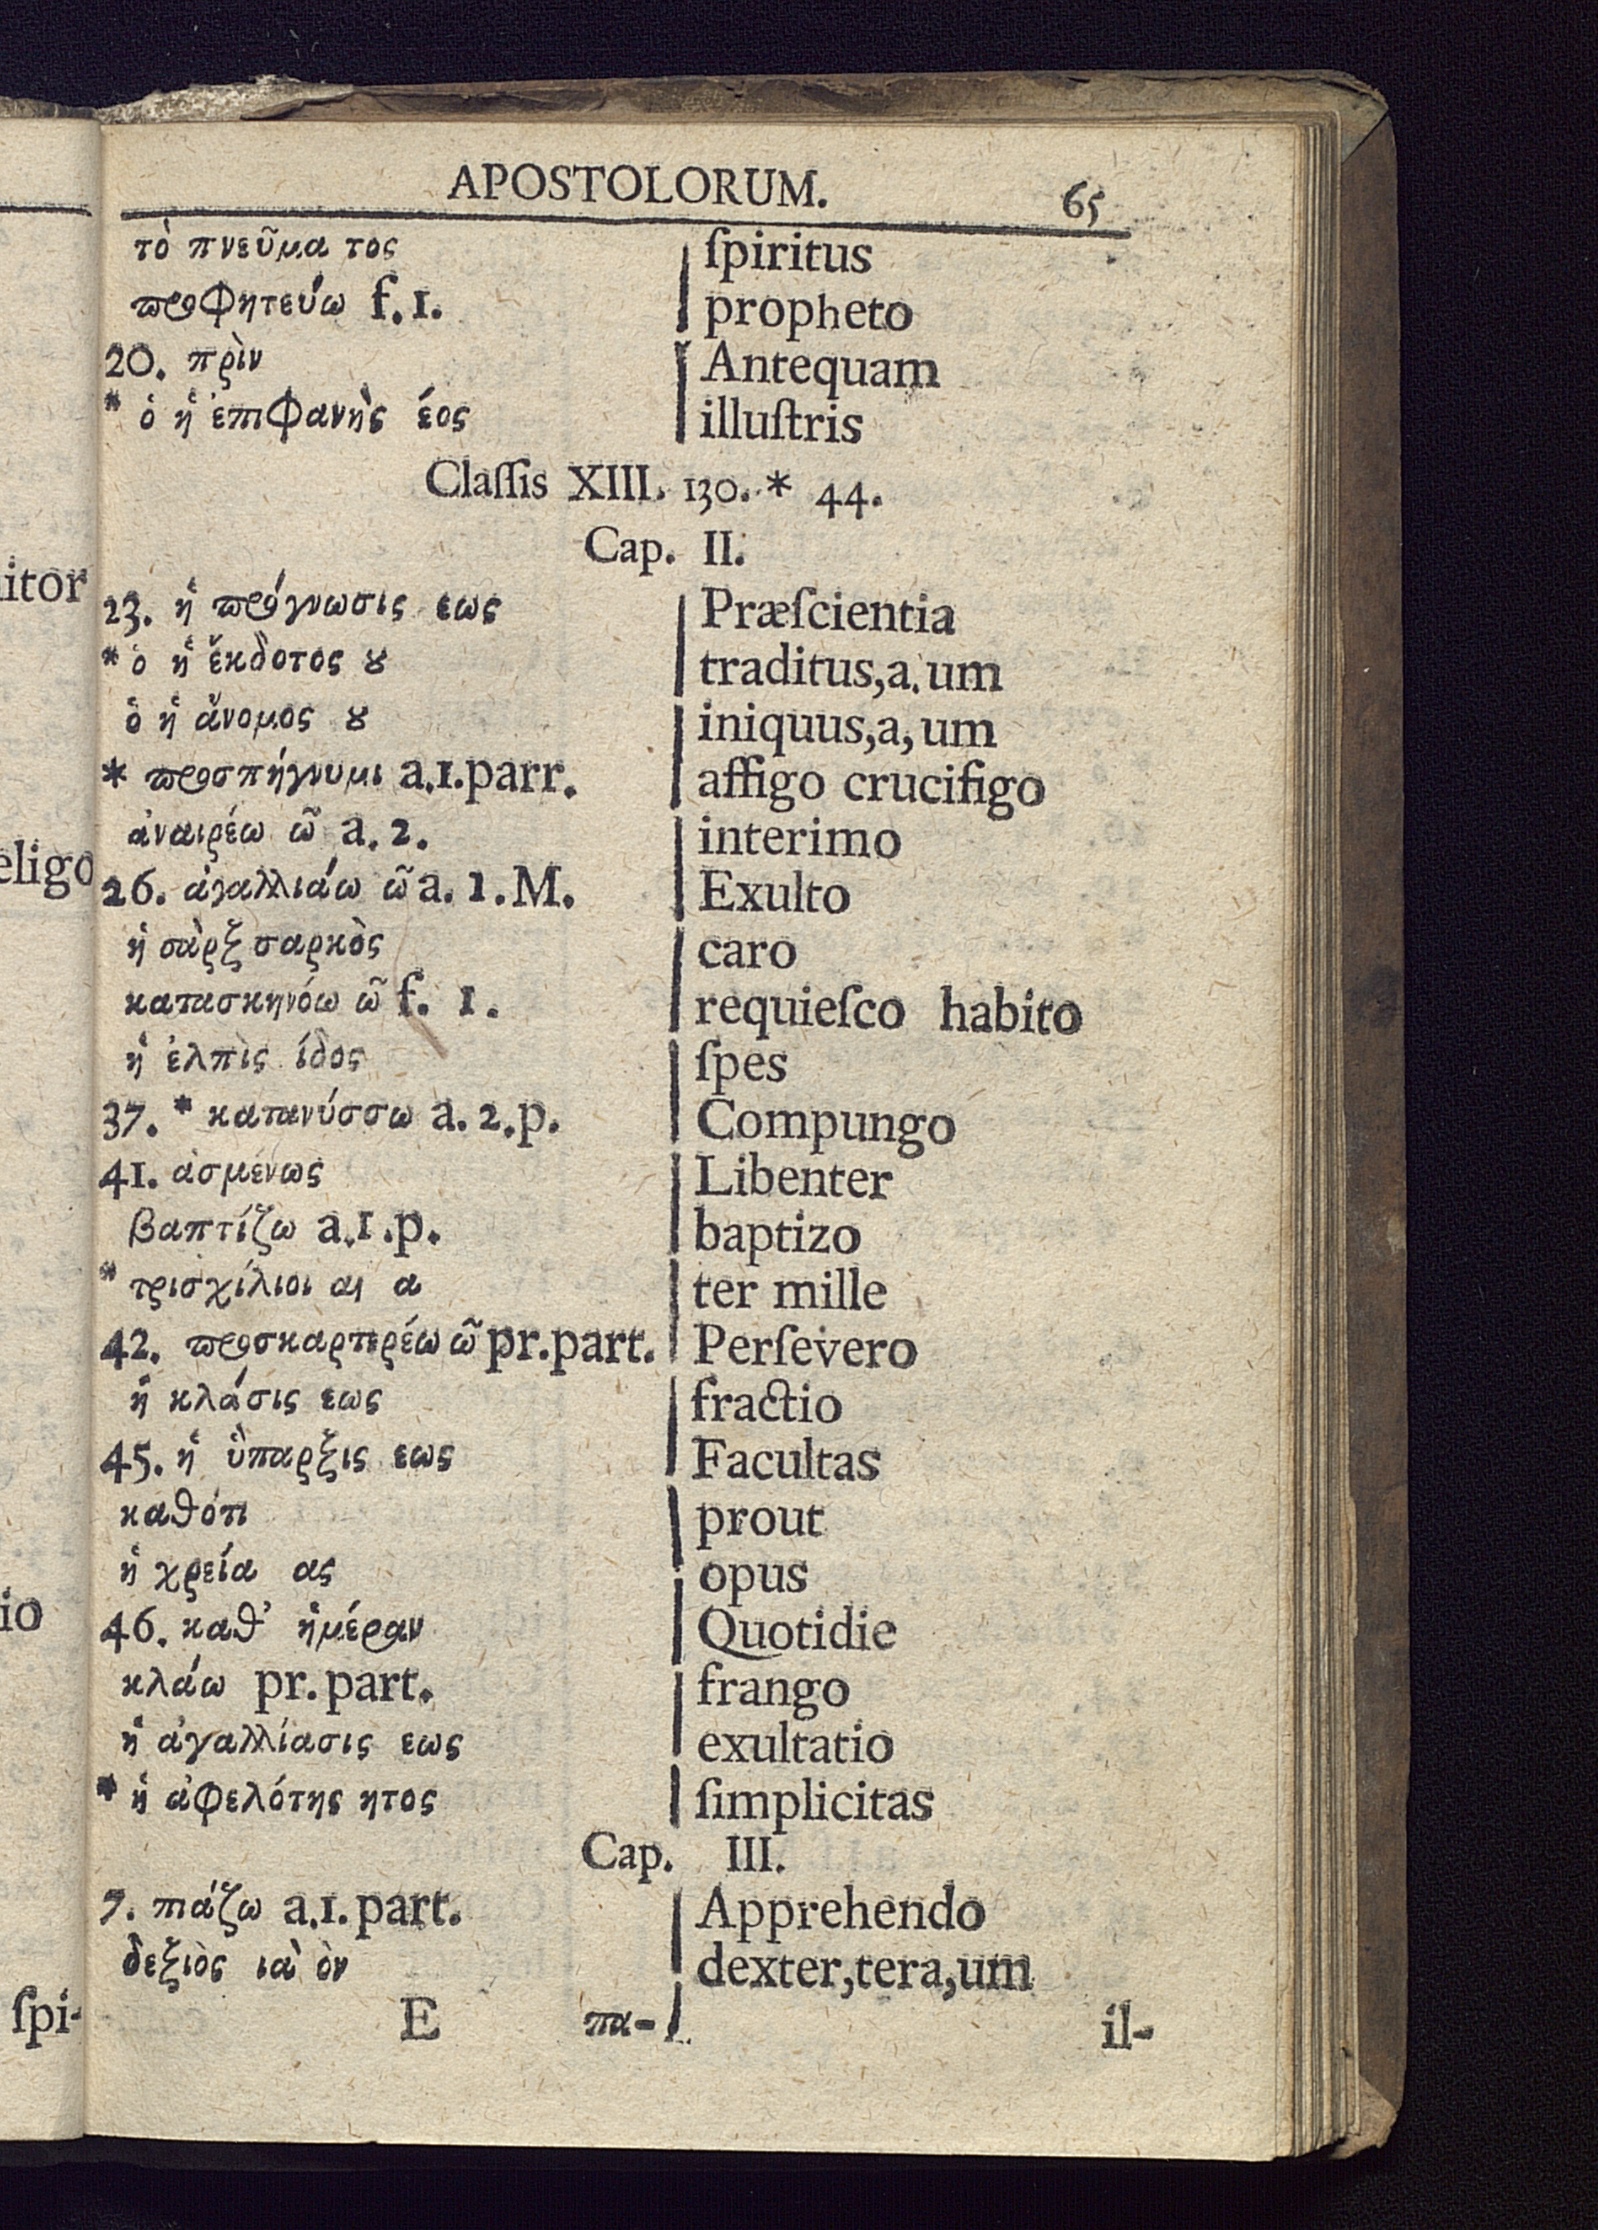 APOSTOLORUM. 65
τὸ πνεῦμα τος ſpiritus
προφητεύω f.1. propheto
20. πρὶν Antequam
* ὁ ἡ ἐπιφανὴς έος illuſtris
Claſſis XIII. 130.* 44.
Cap. II.
23. ἡ πρόγνωσις εως Præſcientia
* ὁ ἡ ἔκδοτος ȣ traditus,a,um
ὁ ἡ ἄνομος ȣ iniquus,a,um
* προσπήγνυμι a.1.parr. affigo crucifigo
ἀναιρέω ῶ a.2. interimo
26. ἀγαλλιάω ῶ a.1.M. Exulto
ἡ σὰρξ σαρκὸς caro
κατασκηνόω ῶ f. 1. requieſco habito
ἡ ἐλπὶς ίδος ſpes
37. * κατανύσσω a.2.p. Compungo
41. ἀσμένως Libenter
βαπτίζω a.1.p. baptizo
* τρισχίλιοι αι α ter mille
42. προσκαρτερέω ῶ pr.part. Perſevero
ἡ κλάσις εως fractio
45. ἡ ὕπαρξις εως Facultas
καθότι prout
ἡ χρεία ας opus
46. καθ' ἡμέραν Quotidie
κλάω pr.part. frango
ἡ ἀγαλλίασις εως exultatio
* ἡ ἀφελότης ητος ſimplicitas
Cap. III.
7. πιάζω a.1.part. Apprehendo
δεξιὸς ιὰ ὸν dexter,tera,um
E πα- il-
itor
eligo
io
ſpi-